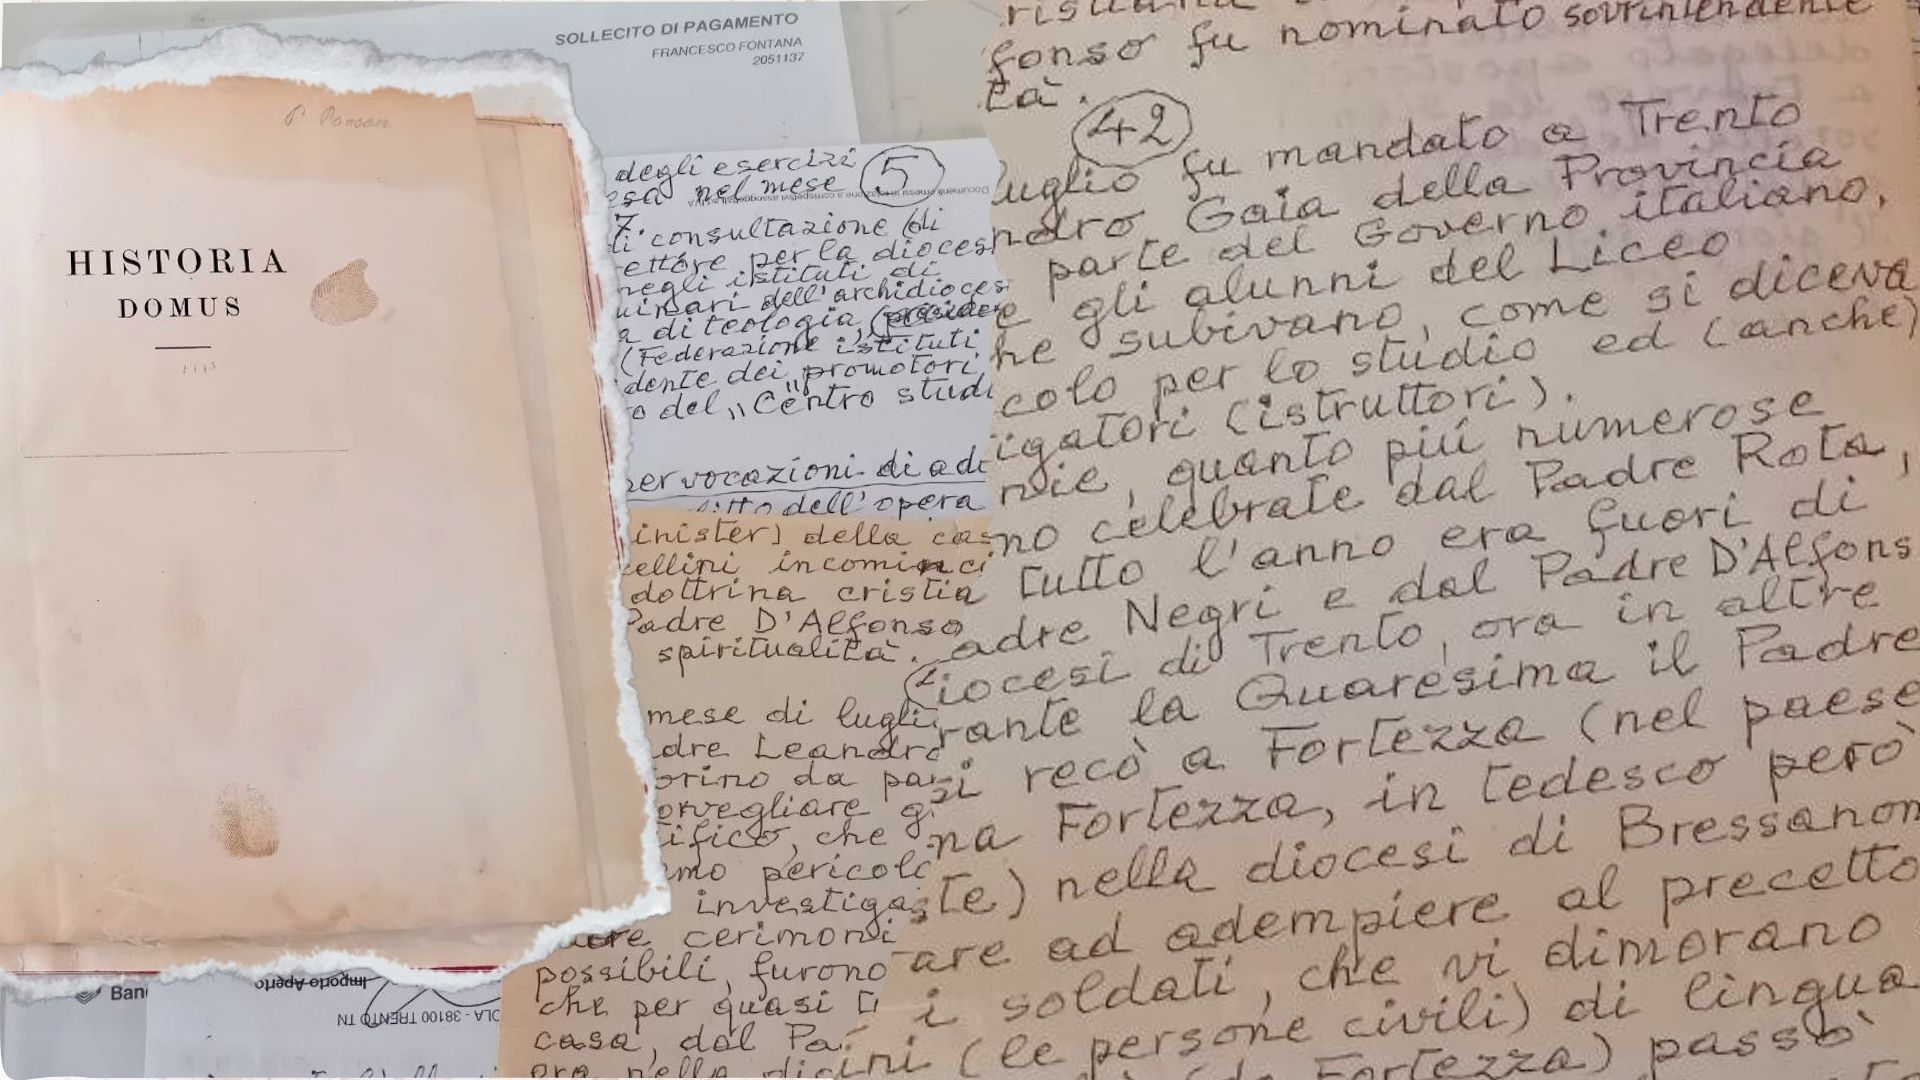 SOLLECITO DI PAGAMENTO
FRANCESCO FONTANA
2051137
HISTORIA
DOMUS
degli esercizi
esa nel mese 5
7.
di consultazione (di
ettore per la dioces
negli istituti di
uinari dell'archidioces
a di teologia,
(Federazione istituti
dente dei „promotori
o del „Centro studi
per vocazioni di ad
dell'opera
inister) della cas
cellini incominci
dottrina cristia
Padre D'Alfonso
spiritualità.
mese di lugli
dre Leandro
orino da pa
orvegliare g
ifico, che
mo pericolo
investiga
cerimoni
possibili, furono
che per quasi t
casa, dal Pa
ora nella dio
fonso fu nominato sovrintendente
tà.
42
luglio fu mandato a Trento
ndro Gaia della Provincia
parte del Governo italiano,
e gli alunni del Liceo
he subivano, come si diceva
colo per lo studio ed (anche)
igatori (istruttori).
nie, quanto più numerose
no celebrate dal Padre Rota,
tutto l'anno era fuori di
adre Negri e dal Padre D'Alfons
iocesi di Trento, ora in altre
rante la Quaresima il Padre
si recò a Fortezza (nel paese
na Fortezza, in tedesco però
ste) nella diocesi di Bressanon
are ad adempiere al precetto
i soldati, che vi dimorano
ini (le persone civili) di lingua
Fortezza) passò
Importo Aperto
OLA - 38100 TRENTO TN
Banc